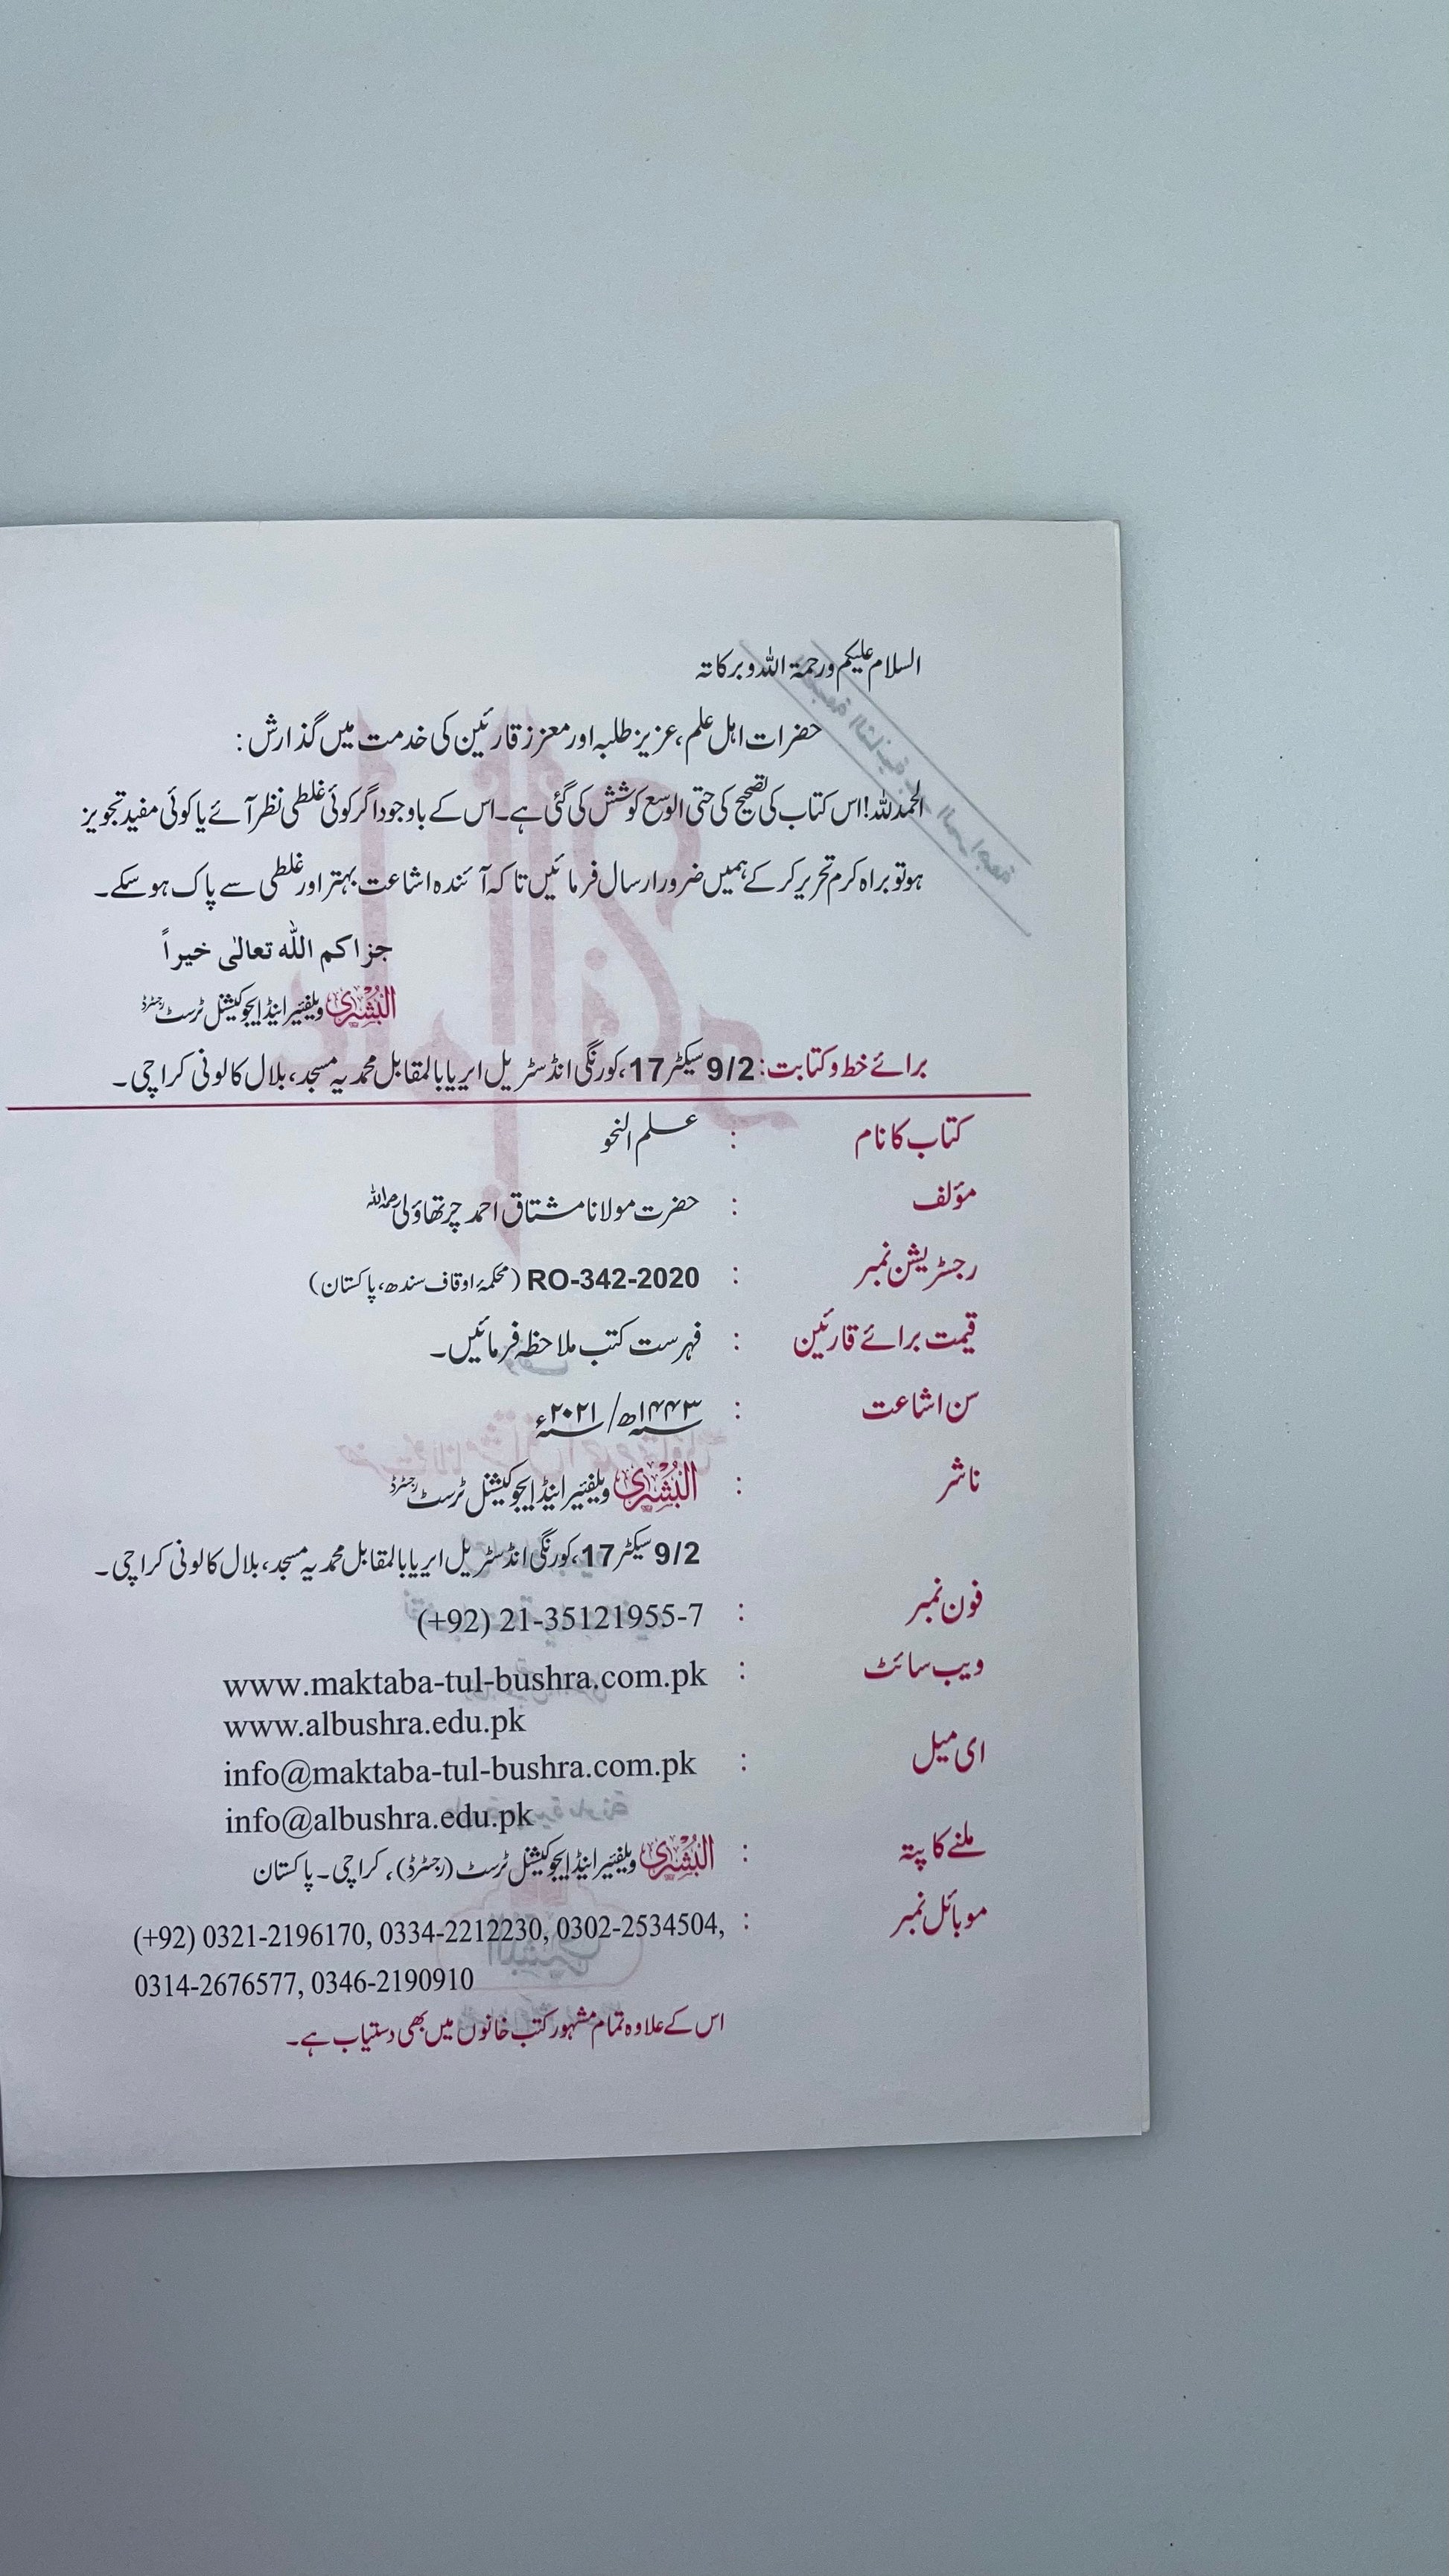 السلام علیکم ورحمۃ اللہ وبرکاتہ
حضرات اہل علم، عزیز طلبہ اور معزز قارئین کی خدمت میں گذارش:
الحمدللہ! اس کتاب کی تصحیح کی حتی الوسع کوشش کی گئی ہے۔ اس کے باوجود اگر کوئی غلطی نظر آئے یا کوئی مفید تجویز
ہو تو براہ کرم تحریر کر کے ہمیں ضرور ارسال فرمائیں تا کہ آئندہ اشاعت بہتر اور غلطی سے پاک ہو سکے۔
جزاکم اللہ تعالٰی خیراً
البُشریٰ ویلفئیر اینڈ ایجوکیشنل ٹرسٹ رجسٹرڈ
برائے خط و کتابت: 9/2 سیکٹر 17، کورنگی انڈسٹریل ایریا بالمقابل محمدیہ مسجد، بلال کالونی کراچی۔
کتاب کا نام : علم النحو
مؤلف : حضرت مولانا مشتاق احمد چرتھاؤلی رحمہ اللہ
رجسٹریشن نمبر : RO-342-2020 (محکمۂ اوقاف سندھ، پاکستان)
قیمت برائے قارئین : فہرست کتب ملاحظہ فرمائیں۔
سن اشاعت : ۱۴۴۳ھ/ ۲۰۲۱ء
ناشر : البُشریٰ ویلفئیر اینڈ ایجوکیشنل ٹرسٹ رجسٹرڈ
9/2 سیکٹر 17، کورنگی انڈسٹریل ایریا بالمقابل محمدیہ مسجد، بلال کالونی کراچی۔
فون نمبر : (+92) 21-35121955-7
ویب سائٹ : www.maktaba-tul-bushra.com.pk
www.albushra.edu.pk
ای میل : info@maktaba-tul-bushra.com.pk
info@albushra.edu.pk
ملنے کا پتہ : البُشریٰ ویلفئیر اینڈ ایجوکیشنل ٹرسٹ (رجسٹرڈ)، کراچی۔ پاکستان
موبائل نمبر : (+92) 0321-2196170, 0334-2212230, 0302-2534504,
0314-2676577, 0346-2190910
اس کے علاوہ تمام مشہور کتب خانوں میں بھی دستیاب ہے۔